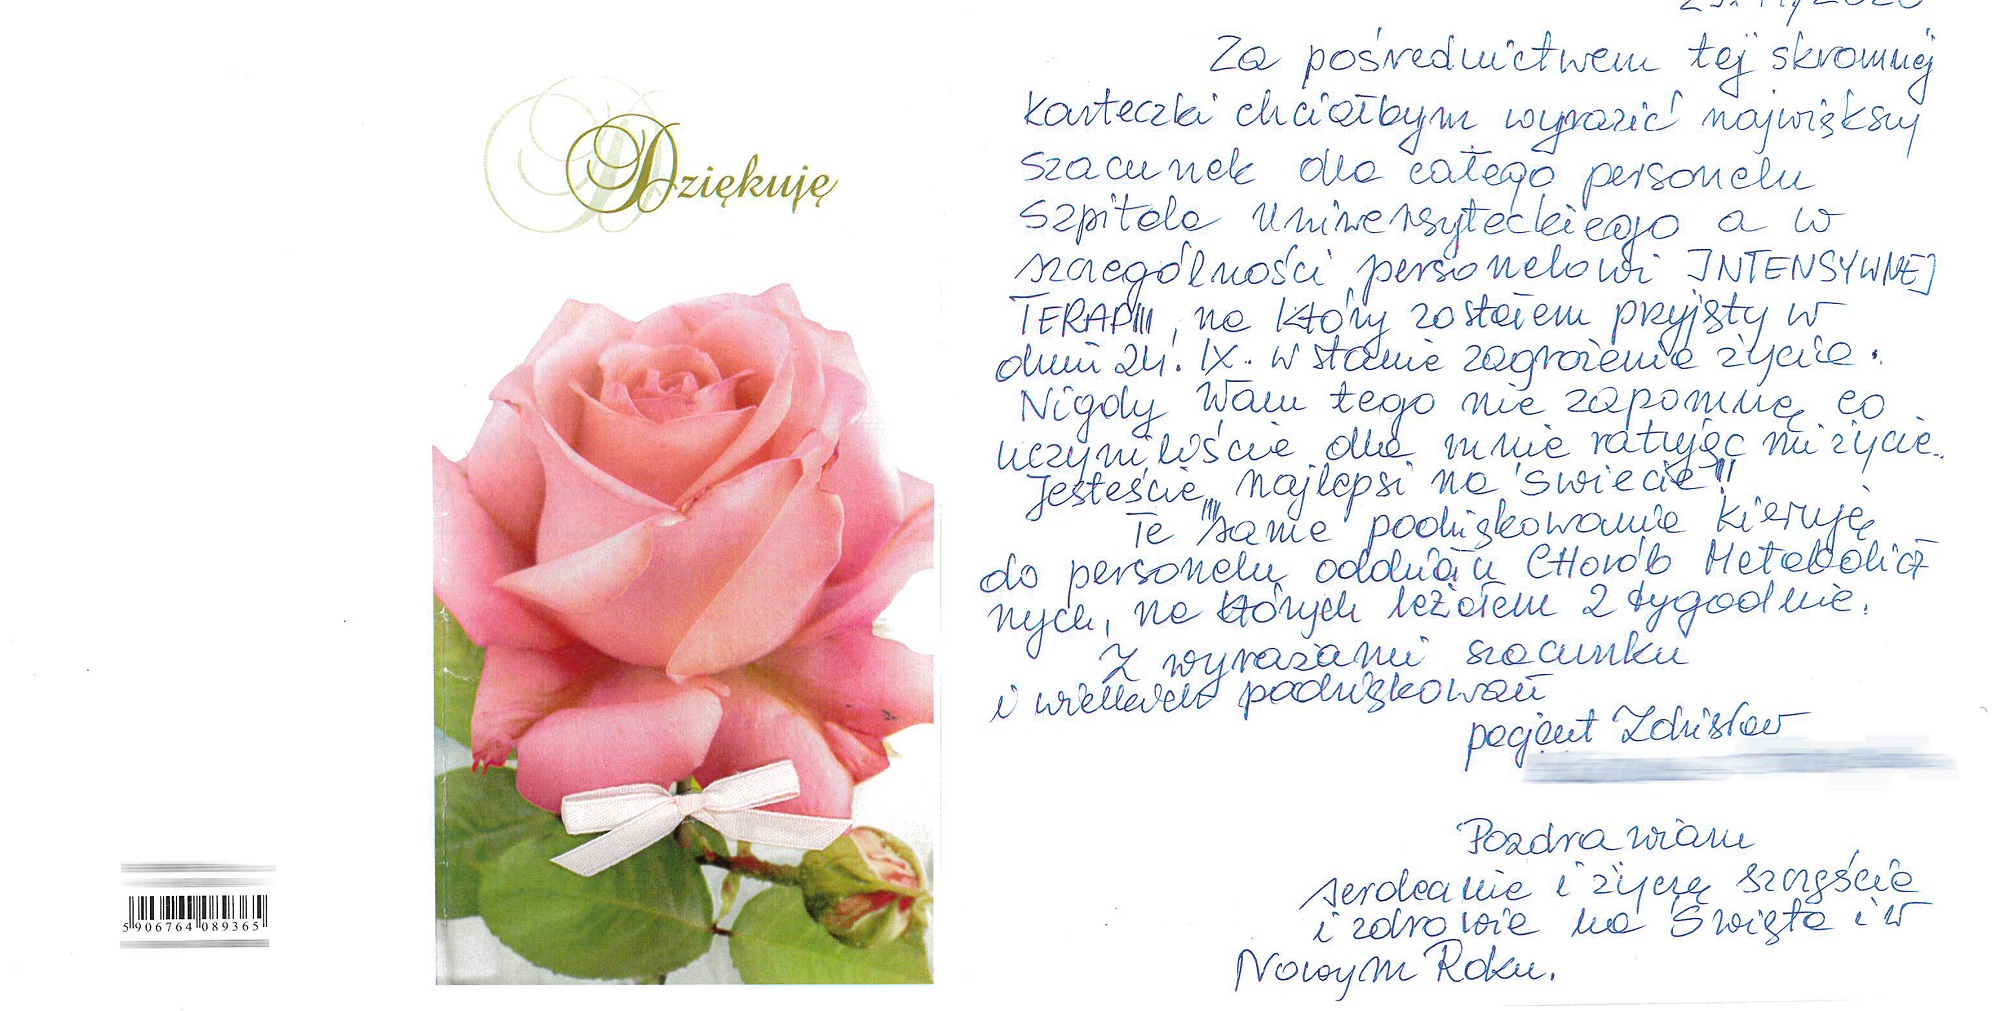 Dziękuję
5 906764 089365
Za pośrednictwem tej skromnej
karteczki chciałbym wyrazić największy
szacunek dla całego personelu
Szpitala Uniwersyteckiego a w
szczególności personelowi INTENSYWNEJ
TERAPIII, na który zostałem przyjęty w
dniu 24. IX. w stanie zagrożenia życia.
Nigdy Wam tego nie zapomnę co
uczyniliście dla mnie ratując mi życie.
Jesteście najlepsi na świecie!!
Te same podziękowania kieruję
do personelu oddziału CHorób Metabolicz
nych, na których leżałem 2 tygodnie.
Z wyrazami szacunku
i wielkich podziękowań
pacjent Zdzisław
Pozdrawiam
serdecznie i życzę szczęścia
i zdrowia na Święta i w
Nowym Roku.